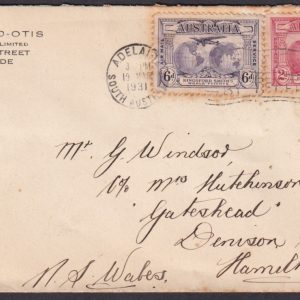 D-OTIS
LIMITED
STREET
DE
ADELAI
3
19
1931
SOUTH AUST
AUSTRALIA
AIR MAIL
SERVICE
KINGSFORD SMITH'S
6d
6d
2d
Mr G. Windsor,
c/o Mrs Hutchinson
"Gateshead"
Denison
Hamil
N. S. Wales.